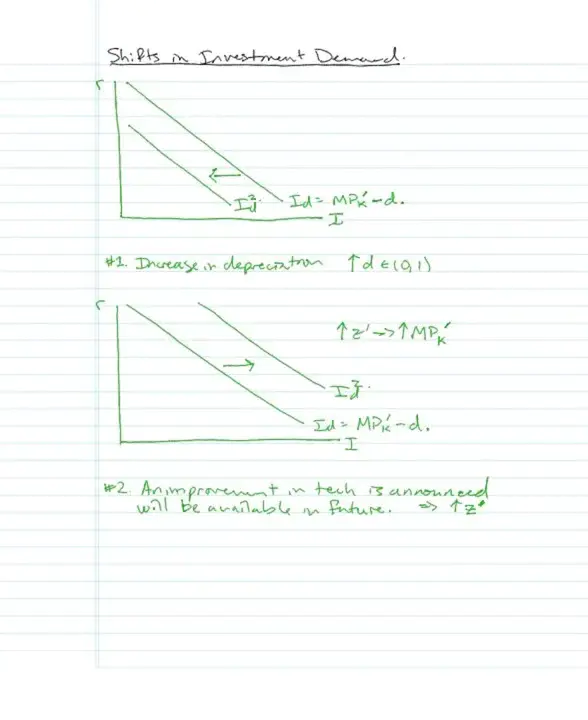 Shifts in Investment Demand.
r
I²d
Id = MPK' - d.
I
#1. Increase in depreciation ↑d ∈ (0,1)
r
↑z' → ↑MPK'
I²d.
Id = MPK' - d.
I
#2. An improvement in tech is announced
will be available in future. ⇒ ↑z'